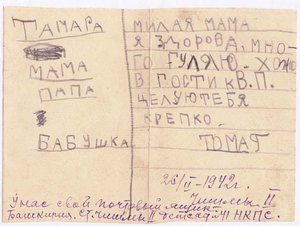 ТАМАРА
МАМА
ПАПА
БАБУШКА
МИЛАЯ МАМА
Я ЗДОРОВА, МНО-
ГО ГУЛЯЮ. ХОЖУ
В ГОСТИ К В.П.
ЦЕЛУЮ ТЕБЯ
КРЕПКО.
ТОМА
26/II-1942г.
Чишмы II
У нас свой почтовый ящик
Башкирия, ст. Чишмы II детсад №41 НКПС.